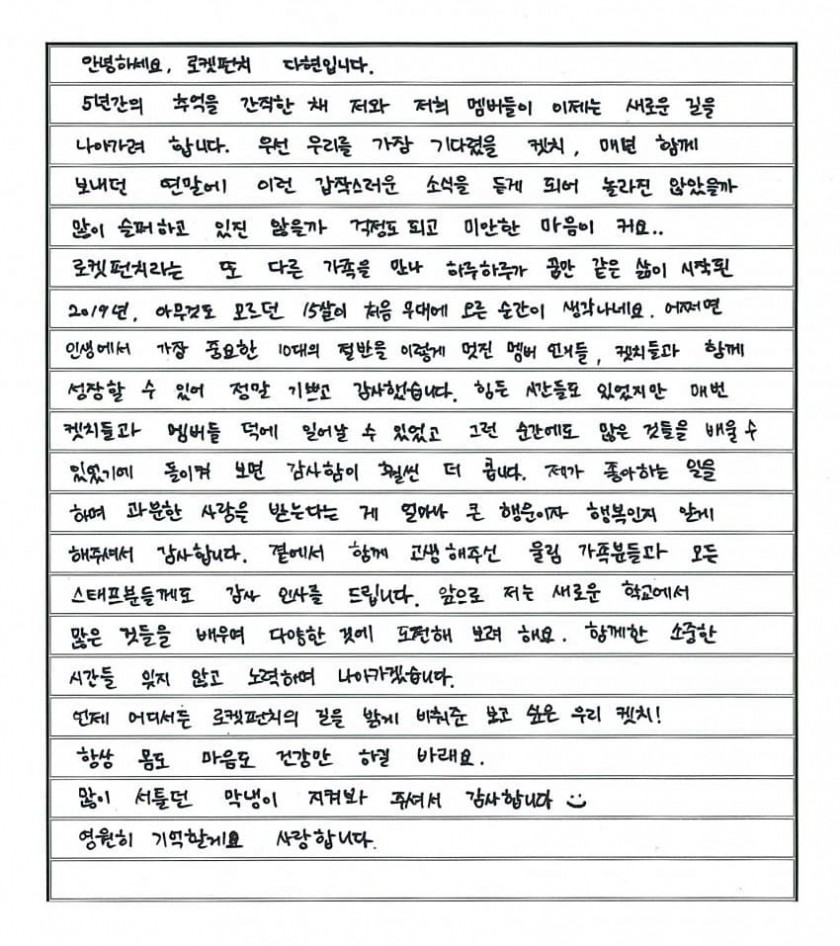 안녕하세요, 로켓펀치 다현입니다.
5년간의 추억을 간직한 채 저와 저희 멤버들이 이제는 새로운 길을
나아가려 합니다. 우선 우리를 가장 기다렸을 켓치, 매년 함께
보내던 연말에 이런 갑작스러운 소식을 듣게 되어 놀라진 않았을까
많이 슬퍼하고 있진 않을까 걱정도 되고 미안한 마음이 커요..
로켓펀치라는 또 다른 가족을 만나 하루하루가 꿈만 같은 삶이 시작된
2019년, 아무것도 모르던 15살이 처음 무대에 오른 순간이 생각나네요. 어쩌면
인생에서 가장 중요한 10대의 절반을 이렇게 멋진 멤버 언니들, 켓치들과 함께
성장할 수 있어 정말 기쁘고 감사했습니다. 힘든 시간들도 있었지만 매번
켓치들과 멤버들 덕에 일어날 수 있었고 그런 순간에도 많은 것들을 배울 수
있었기에 돌이켜 보면 감사함이 훨씬 더 큽니다. 제가 좋아하는 일을
하며 과분한 사랑을 받는다는 게 얼마나 큰 행운이자 행복인지 알게
해주셔서 감사합니다. 곁에서 함께 고생해주신 울림 가족분들과 모든
스태프분들께도 감사 인사를 드립니다. 앞으로 저는 새로운 학교에서
많은 것들을 배우며 다양한 것에 도전해 보려 해요. 함께한 소중한
시간들 잊지 않고 노력하며 나아가겠습니다.
언제 어디서든 로켓펀치의 길을 밝게 비춰준 보고 싶은 우리 켓치!
항상 몸도 마음도 건강만 하길 바래요.
많이 서툴던 막냉이 지켜봐 주셔서 감사합니다 :)
영원히 기억할게요 사랑합니다.